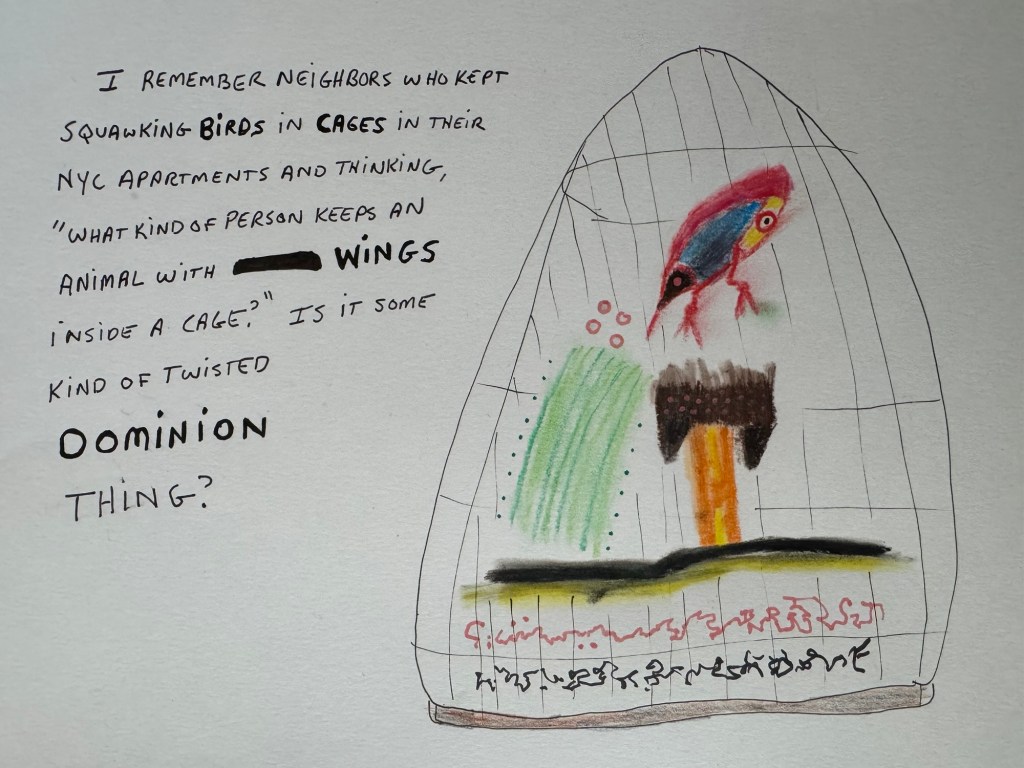 I REMEMBER NEIGHBORS WHO KEPT
SQUAWKING BIRDS IN CAGES IN THEIR
NYC APARTMENTS AND THINKING,
"WHAT KIND OF PERSON KEEPS AN
ANIMAL WITH WINGS
INSIDE A CAGE?" IS IT SOME
KIND OF TWISTED
DOMINION
THING?